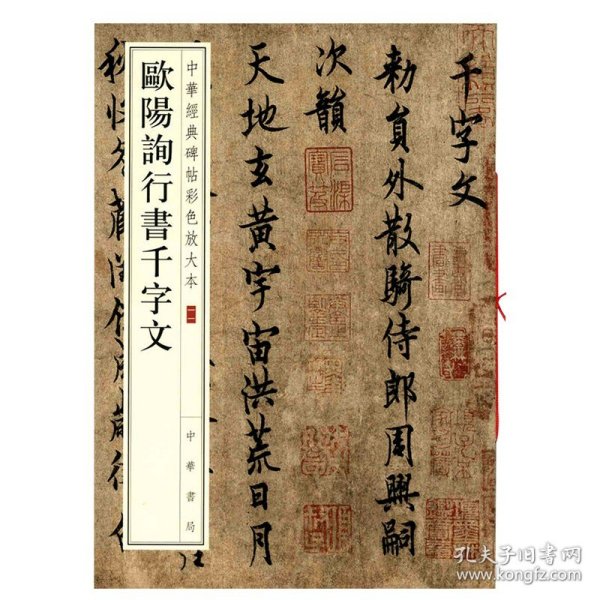 千字文
勑員外散騎侍郎周興嗣
次韻
天地玄黃宇宙洪荒日月
秋收冬藏閏餘成歲律
中華經典碑帖彩色放大本
歐陽詢行書千字文
中華書局
孔夫子旧书网
www.kongfz.com